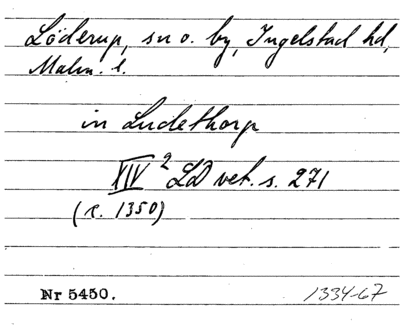 Löderup, sn o. by, Ingelstad hd,
Malm. l.
in Ludethorp
XIV² LD vet. s. 271
(c. 1350)
Nr 5450. 1334-67